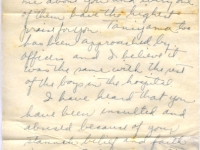 me about you and every one
of them have the highest
praise for you
has been approached by
officers and I believe it
was the same with the rest
of the boys in the hospital
I have heard that you
have been insulted and
abused because of your
belief and faith